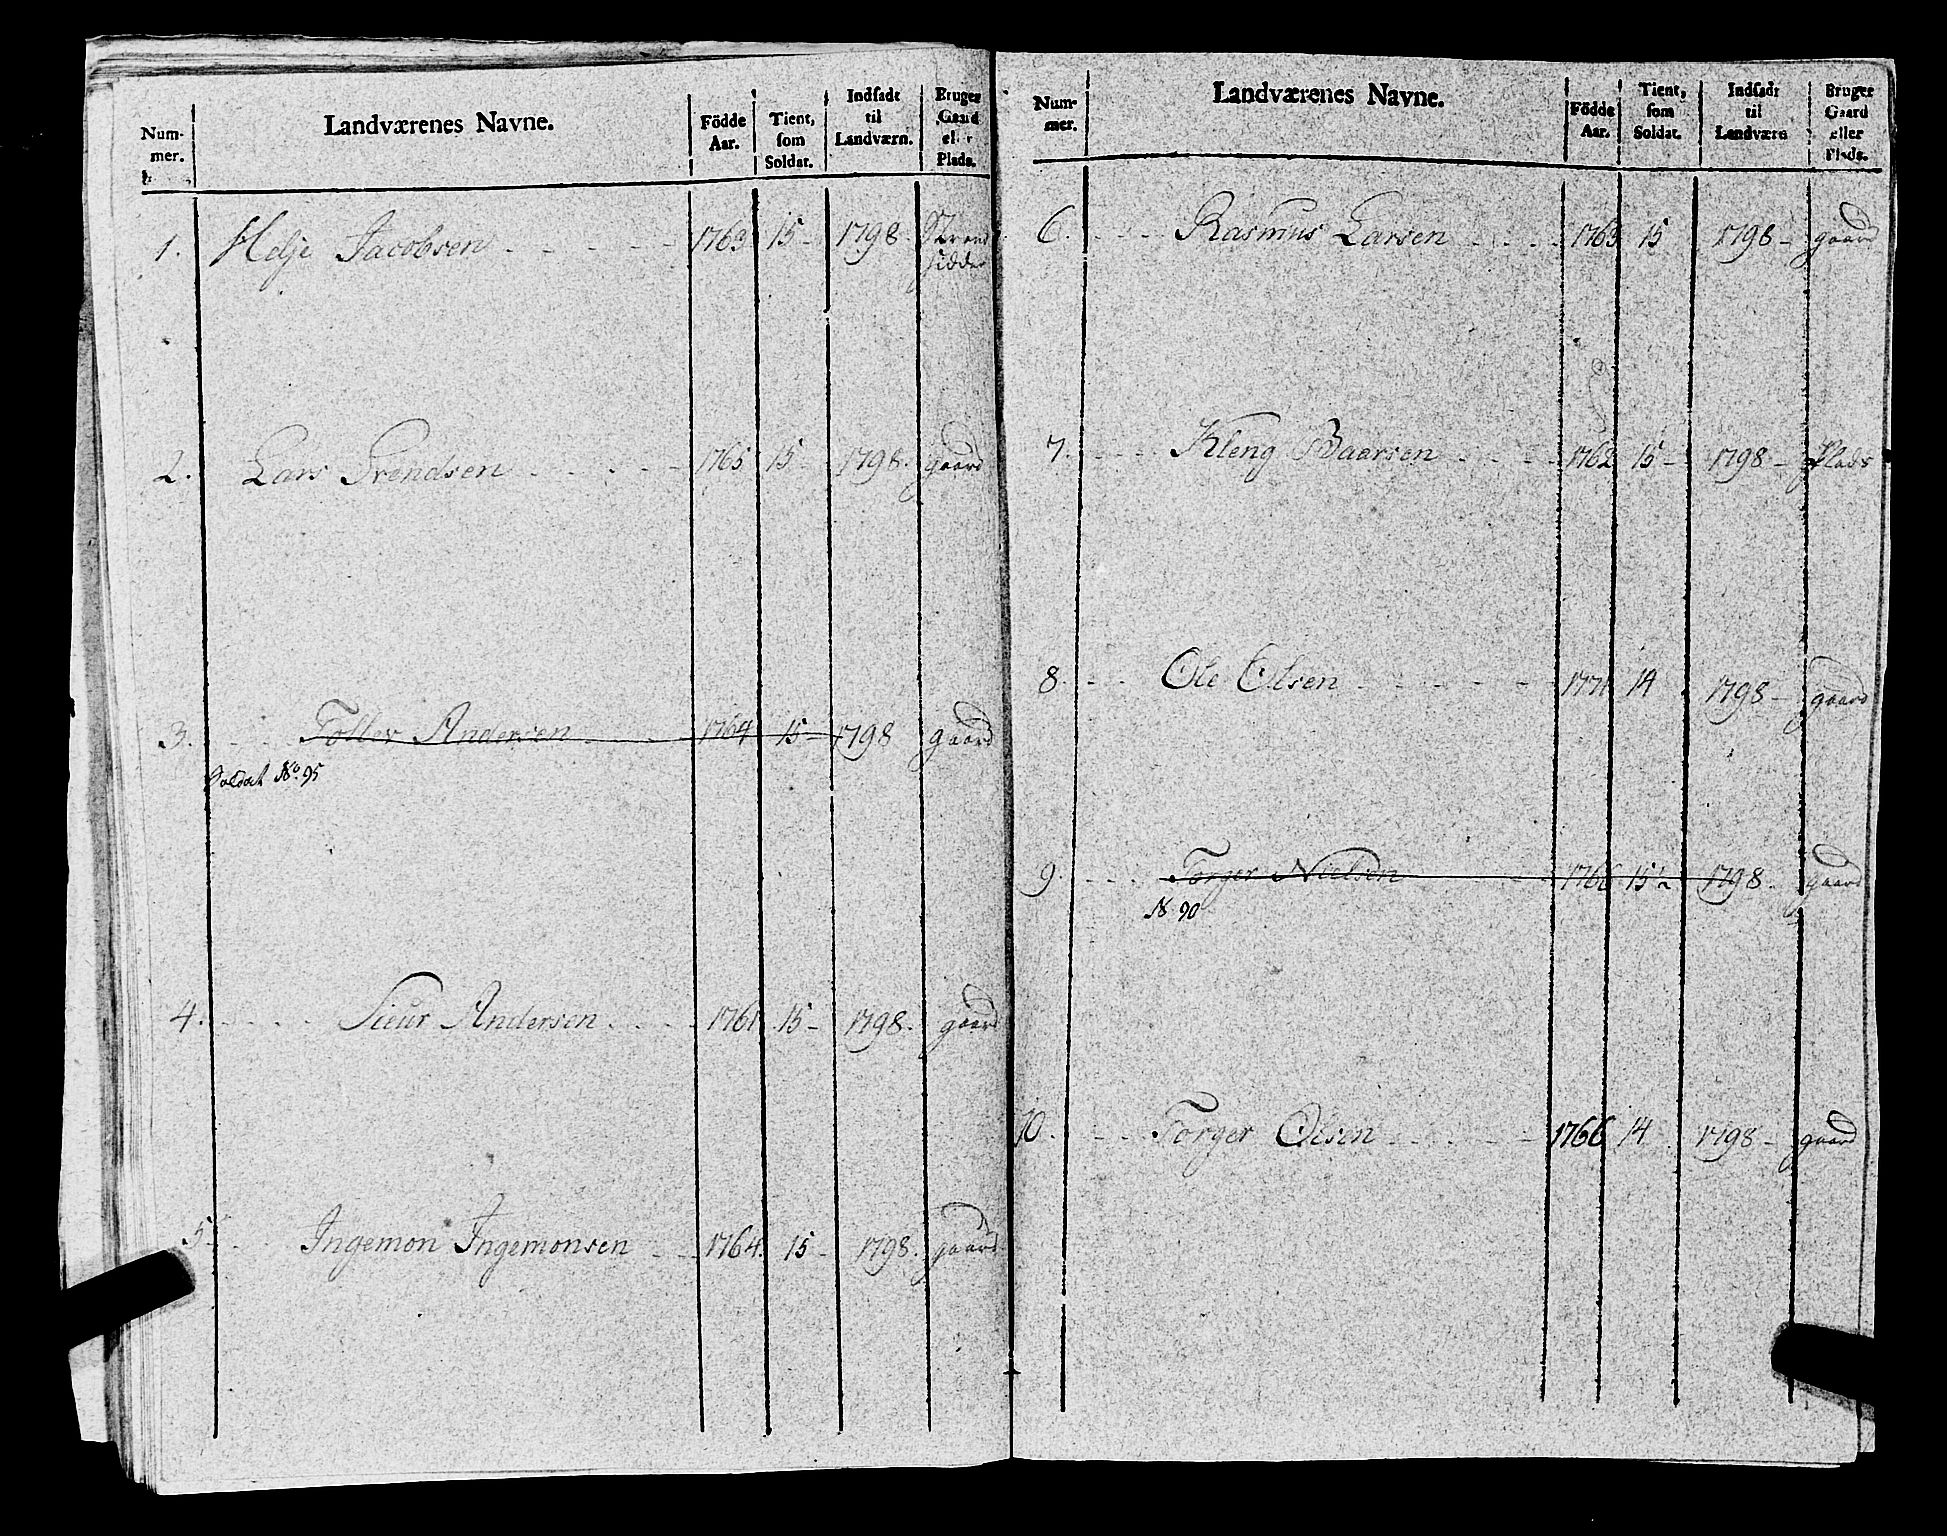 Num-
mer.
Landværenes Navne.
Födde
Aar.
Tient,
som
Soldat.
Indsadt
til
Landværn.
Bruger
Gaard
eller
Plads.
1. Helje Jacobsen 1763 15 1798 Strand
sidder
2. Lars Trendsen 1765 15 1798. gaard
3. Toller Andersen 1764 15 1798 gaard
Soldat No. 95
4. Siur Andersen 1761 15 1798. gaard
5 Ingemon Ingemonsen 1764. 15 1798. gaard
Num-
mer.
Landværenes Navne.
Födde
Aar.
Tient,
som
Soldat.
Indsadt
til
Landværn
Bruger
Gaard
eller
Plads.
6. Rasmus Larsen 1763 15 1798 gaard
7. Kleng Baarsen 1762 15 1798 Plads
8. Ole Olsen 1771 14 1798 gaard
9. Torger Nielsen 1766 15½ 1798. gaard
N 90
10. Torger Olsen 1766 14 1798 gaard